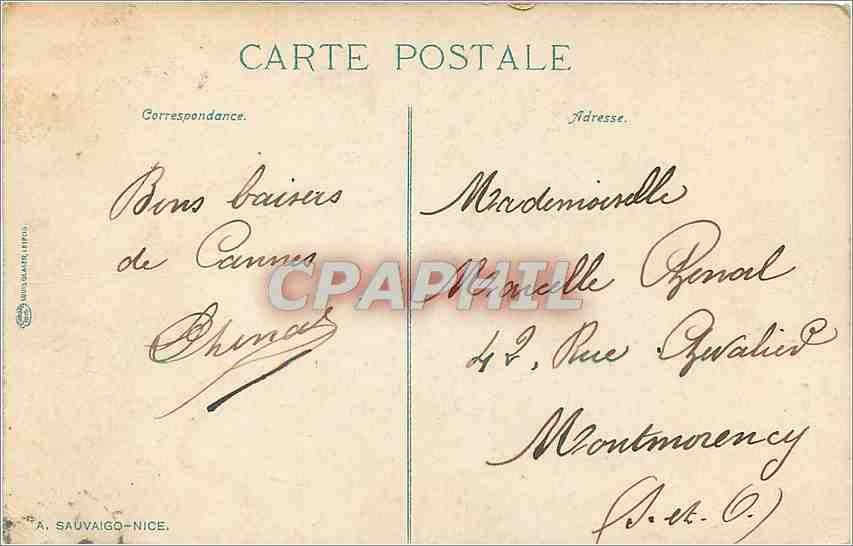 CARTE POSTALE
Correspondance.
Adresse.
Bons baisers
de Cannes
Chenal
Mademoiselle
Marcelle Chenal
42, Rue Chevalier
Montmorency
(S.-et-O.)
CPAPHIL
LOUIS GLASER, LEIPZIG
A. SAUVAIGO-NICE.